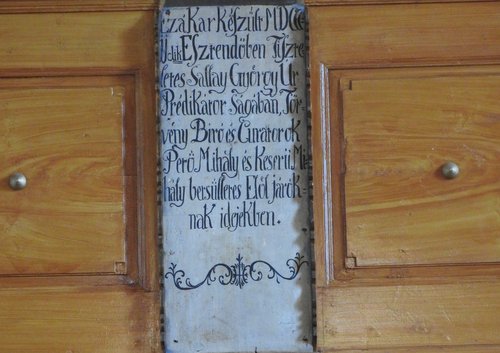 Ezá Kar Készűlt MDCC
dik Esztendőben Tisze
letes Sallay György Ur
Prédikátor Ságában, Tör
vény Biró és Curatorok
Perő Mihály és Keserü Mi
hály betsűlletes Elöl járók
nak idejekben.